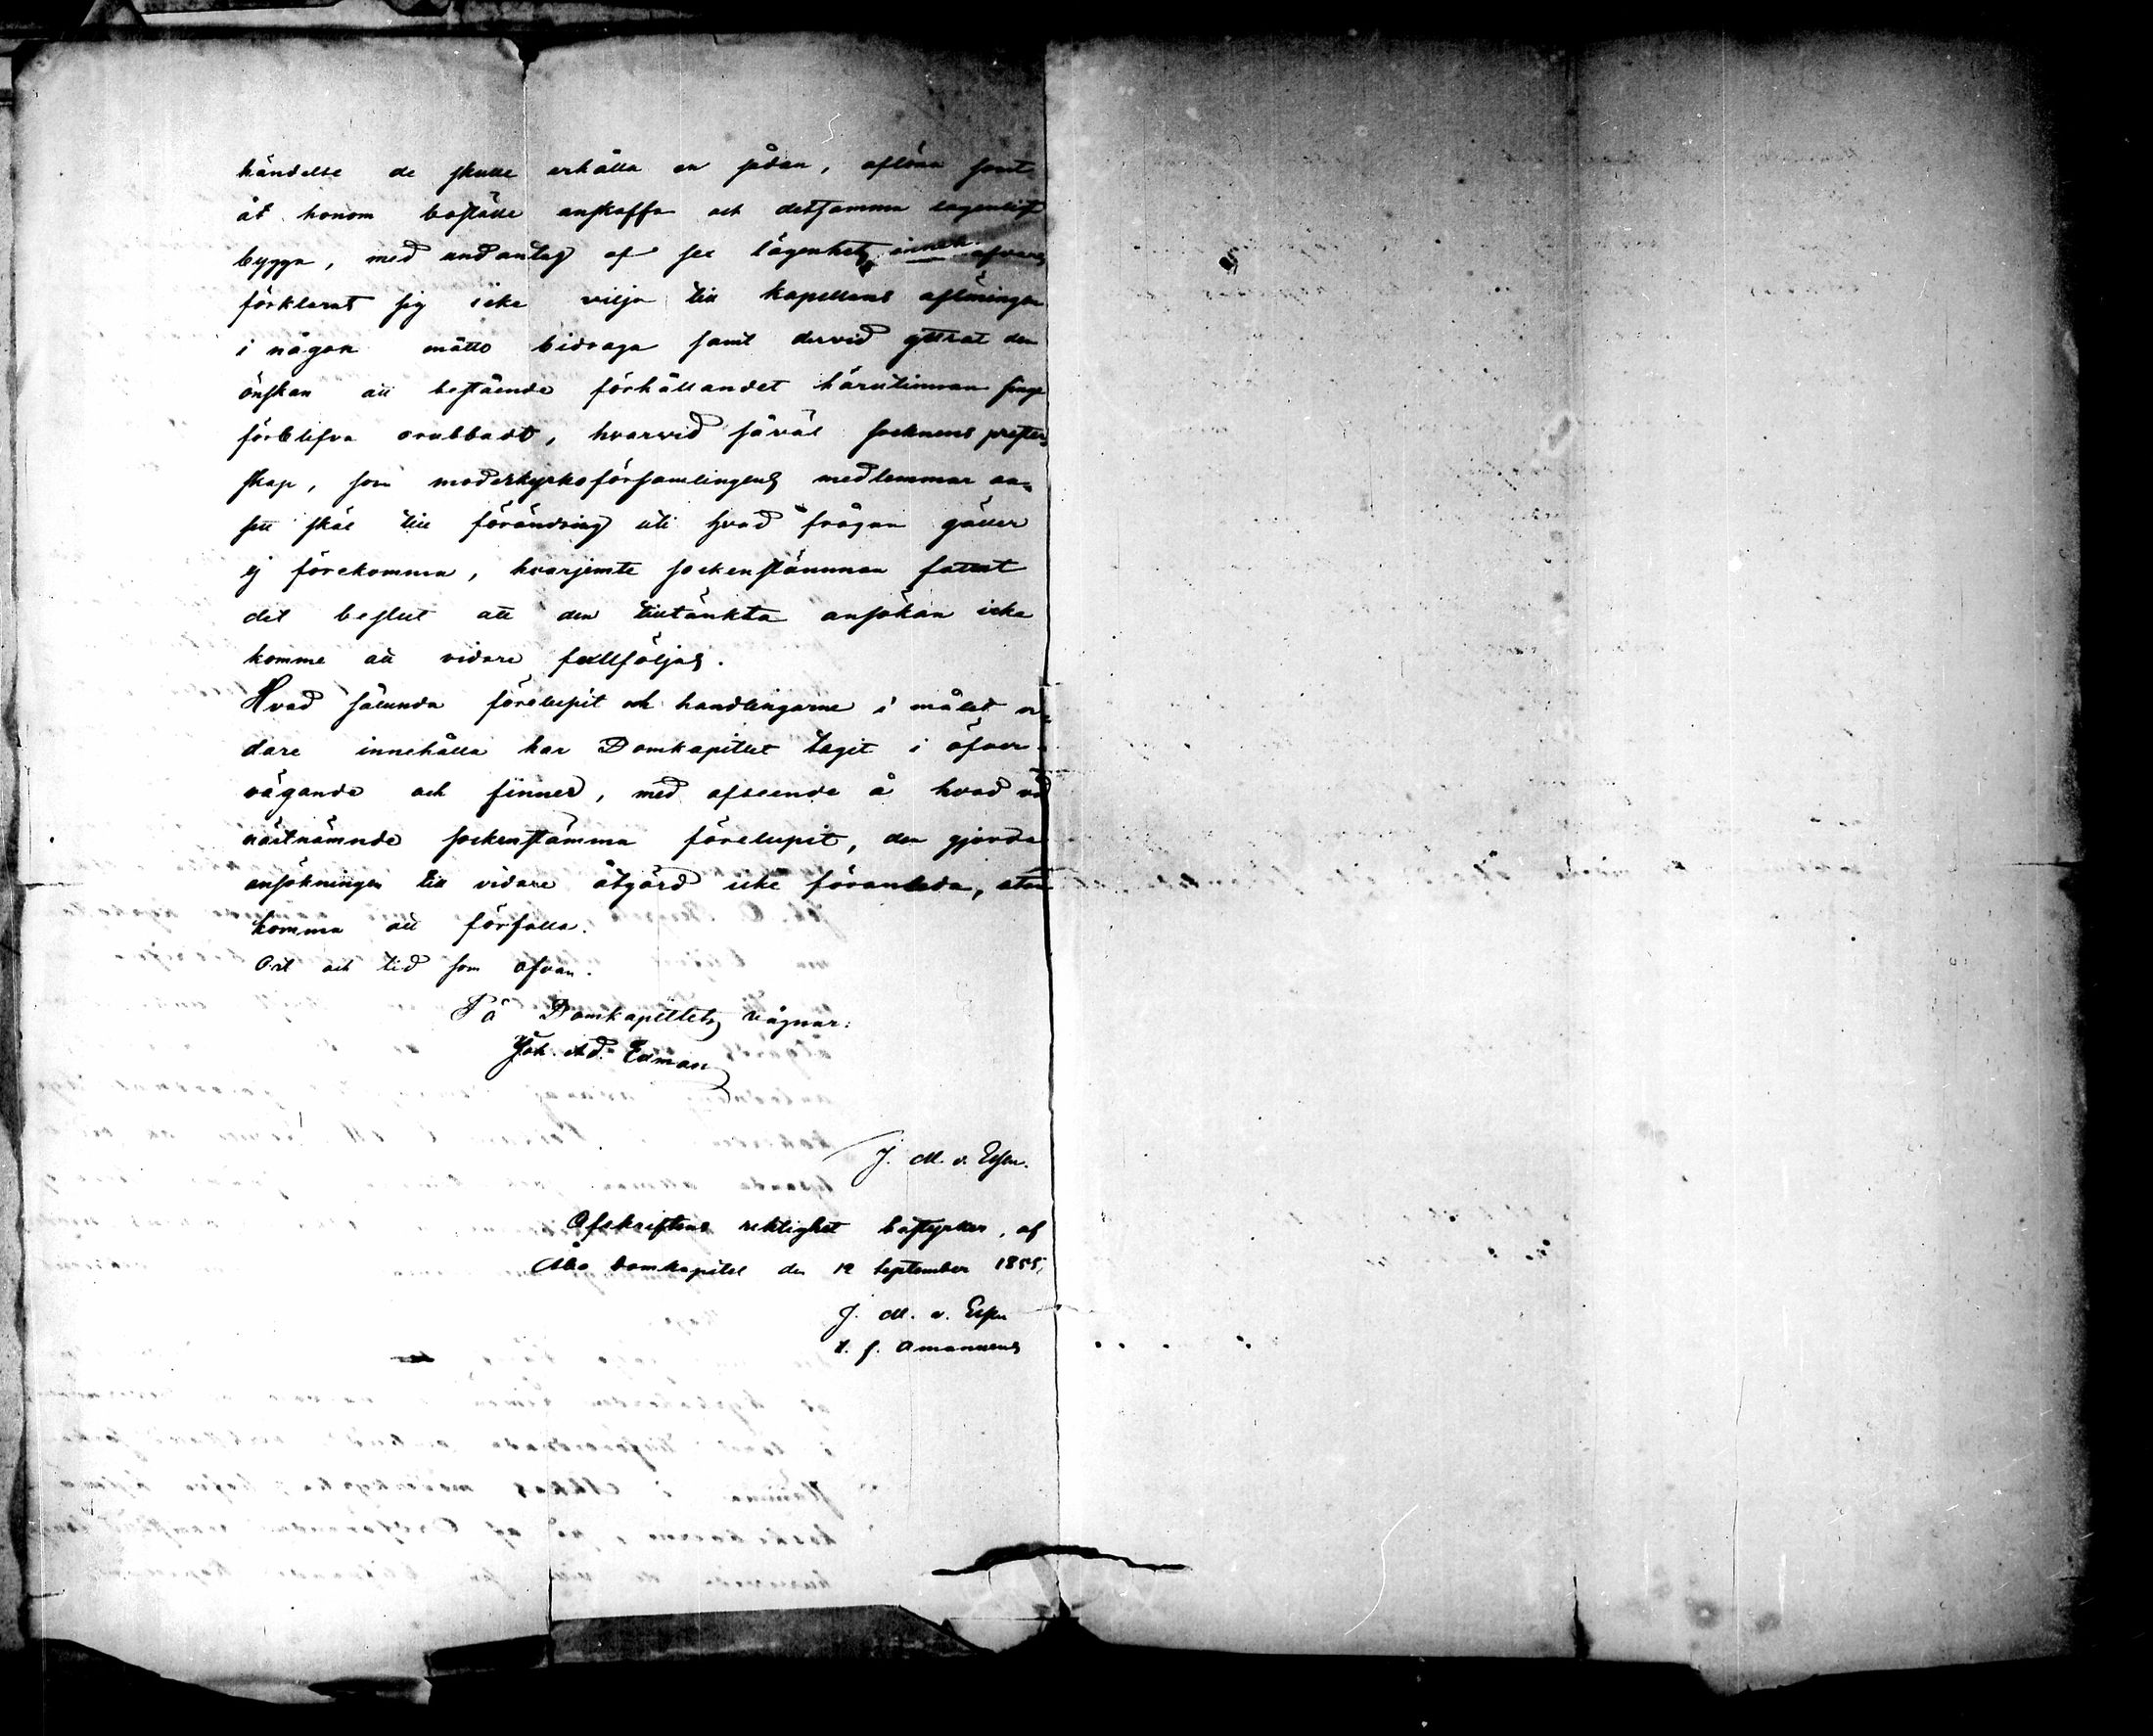 händelse de skulle erhålla en sådan, aflöna samt
åt honom boställe anskaffa och detsamma lagenligt
bygga, med undantag af sex lägenhets innehafvare
förklarat sig icke vilja till kapellans aflöningen
i någon måtto bidraga samt dervid yttrat den
önskan att bestående förhållandet härutinnan finge
förblifva orubbadt, hvarvid såväl socknens prester-
skap, som moderkyrkoförsamlingens medlemmar an-
sett skäl till förändring uti hvad frågan gäller
ej förekomma, hvarjemte sockenstämman fattat
det beslut att den tilltänkta ansökan icke
komme att vidare fullföljas.
Hvad sålunda förelupit och handlingarne i målet vi-
dare innehålla har Domkapitlet tagit i öfver-
vägande och finner, med afseende å hvad vid
nästnämnde sockenstämma förelupit, den gjorda
ansökningen till vidare åtgärd icke föranleda, utan
komma att förfalla.
Ort och tid som ofvan.
På Domkapitlets vägnar:
Joh. Ad. Edman
J. M. v. Essen.
Afskriftens riktighet bestyrker, af
Åbo domkapitel den 12 September 1855,
J. M. v. Essen
t. f. Amanuens